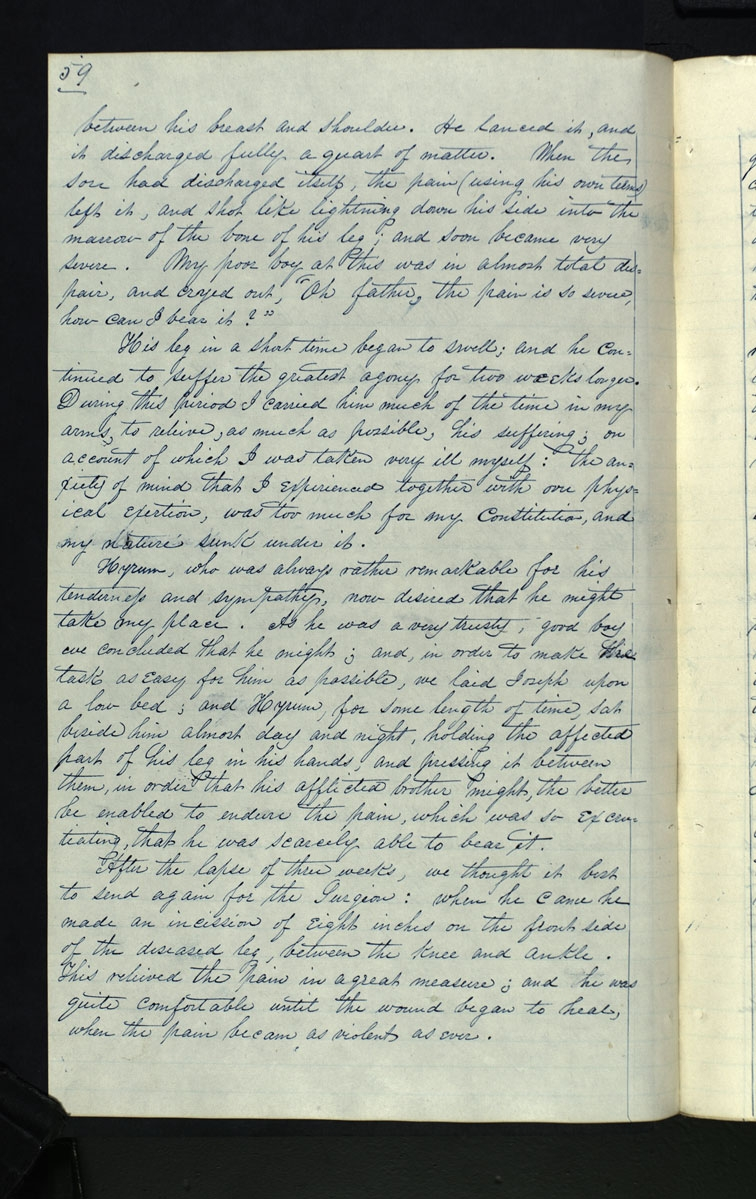 59
between his breast and shoulder. He lanced it, and
it discharged fully a quart of matter. When the
sore had discharged itself, the pain (using his own terms)
left it, and shot like lightning down his side into the
marrow of the bone of his leg; and soon became very
severe. My poor boy at this was in almost total des=
pair, and cryed out, "Oh father, the pain is so severe,
how can I bear it?"
His leg in a short time began to swell; and he con=
tinued to suffer the greatest agony for two weeks longer.
During this period I carried him much of the time in my
arms, to releive, as much as possible, his suffering; on
account of which I was taken very ill myself: The an=
xiety of mind that I experienced together with over phys=
ical exertion, was too much for my constitution, and
my nature sunk under it.
Hyrum, who was always rather remarkable for his
tenderness and sympathy, now desired that he might
take my place. As he was a very trusty, good boy
we concluded that he might; and, in order to make the
task as easy for him as possible, we laid Joseph upon
a low bed; and Hyrum, for some length of time, sat
beside him almost day and night, holding the affected
part of his leg in his hands, and pressing it between
them, in order that his afflicted brother might, the better
be enabled to endure the pain, which was so excru=
tiating, that he was scarcely able to bear it.
After the lapse of three weeks, we thought it best
to send again for the Surgeon: when he came he
made an incission of eight inches on the front side
of the diseased leg, between the knee and ankle.
This releived the pain in a great measure; and he was
quite comfortable until the wound began to heal,
when the pain becam as violent as ever.